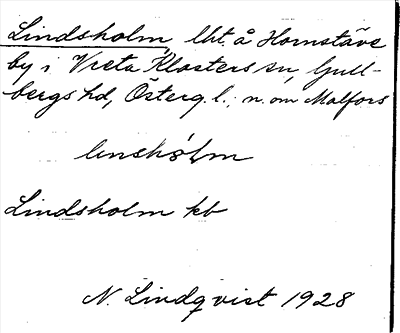 Lindsholm, lht. å Hornstäve
by i Vreta Klosters sn, Gull-
bergs hd, Österg. l.; n. om Malfors
lınshɷlm
Lindsholm kb
N. Lindqvist 1928